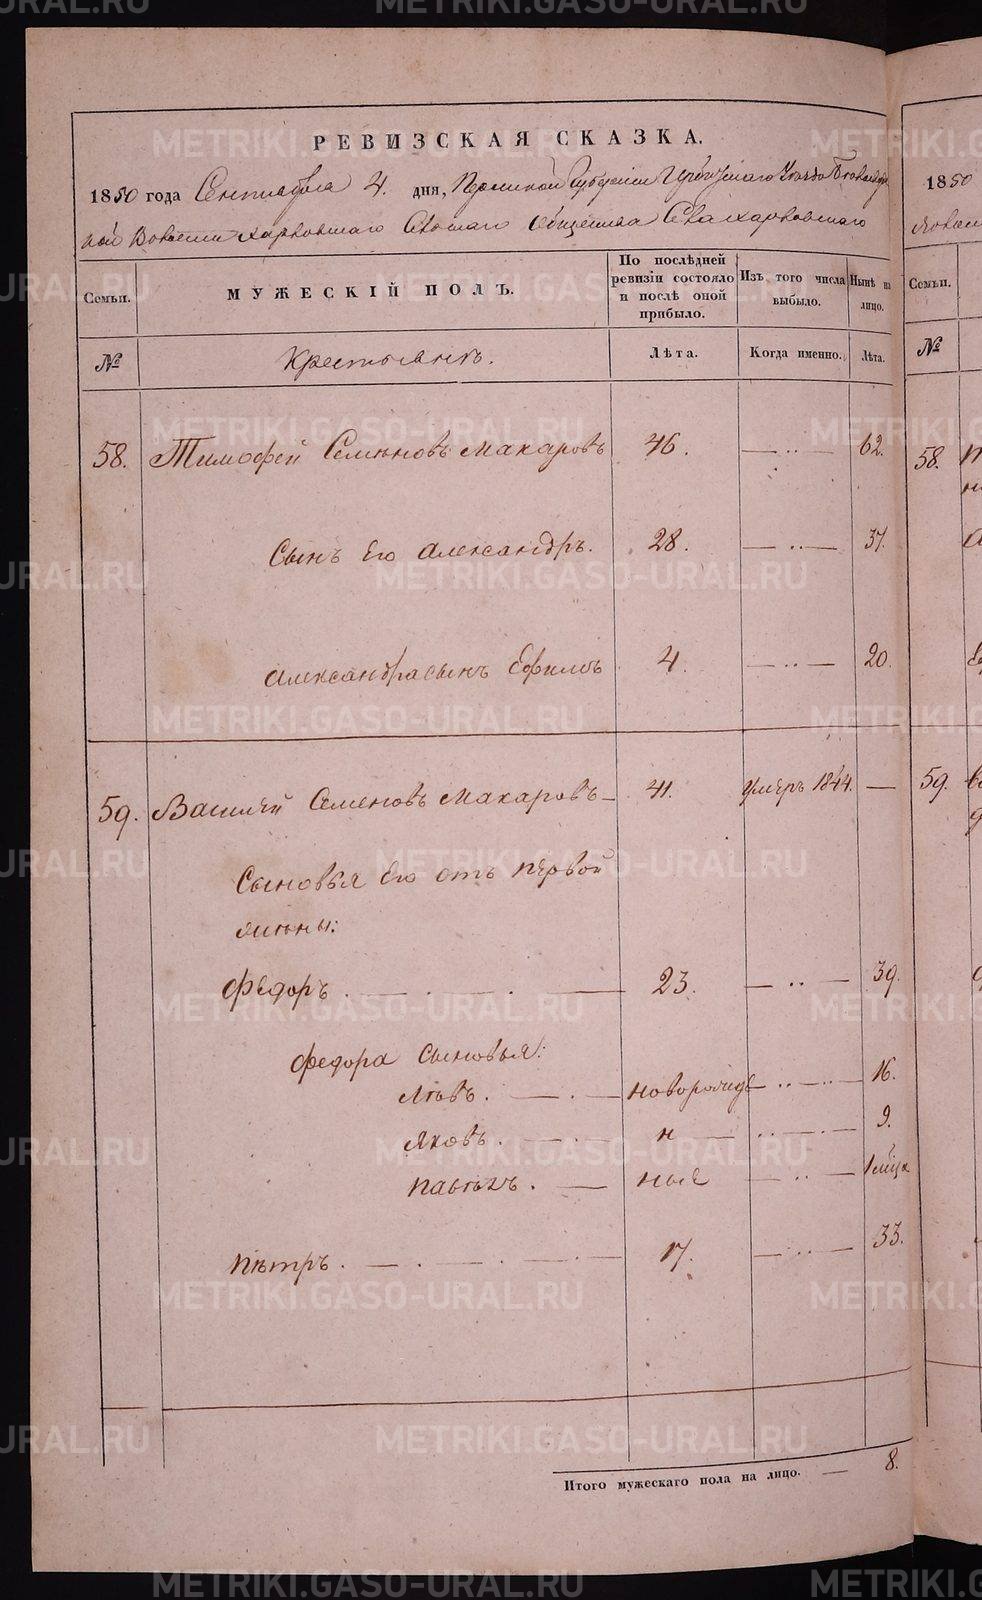 РЕВИЗСКАЯ СКАЗКА.
1850 года Сентября 4. дня, Пермской Губернии Ирбитскаго Уезда
ной Волости Харловскаго Сельскаго Общества Села Харловскаго
Семьи. МУЖЕСКІЙ ПОЛЪ. По послѣдней ревизіи состояло и послѣ оной прибыло. Изъ того числа выбыло. Нынѣ на лицо.
№ Крестьянъ. Лѣта. Когда именно. Лѣта.
58. Тимофей Семѣновъ Макаровъ 46. — .. — 62.
Сынъ Его Александръ. 28. — .. — 37.
Александра сынъ Ефимъ 4. — .. — 20.
59. Василей Семеновъ Макаровъ — 41. Умеръ 1844. —
Сыновья Его отъ первой
жены:
Федоръ . — . — . — 23. — .. — 39.
Федора Сыновья:
Львъ . — . — новорожде — .. — .. — 16.
Яковъ . — . — н — .. — .. — 9.
Павелъ . — ные — .. — 1 мѣца
Пѣтръ . — . — . — . — 17. — .. — 33.
Итого мужескаго пола на лицо. — 8.
1850
Семьи.
№
58.
59.
METRIKI.GASO-URAL.RU